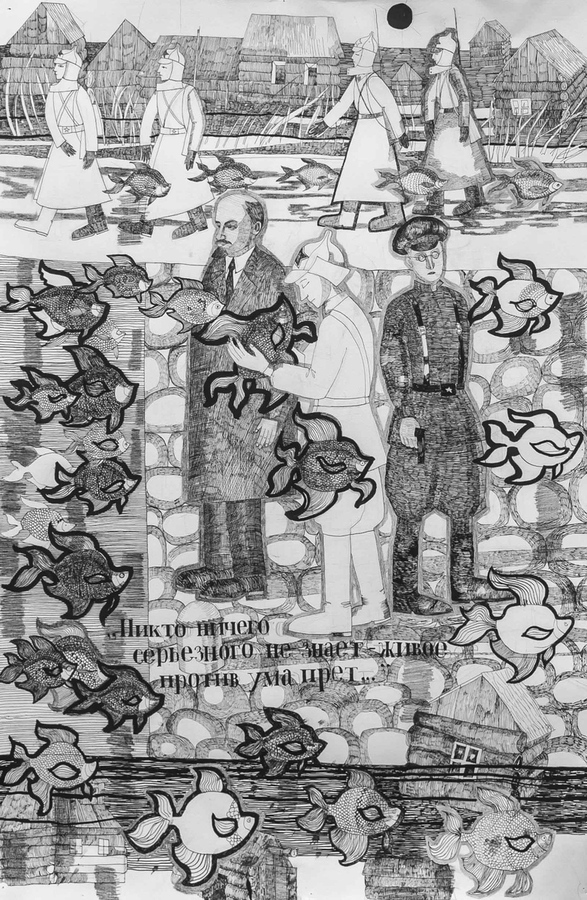 „Никто ничего
серьезного не знает - живое
против ума прет..."